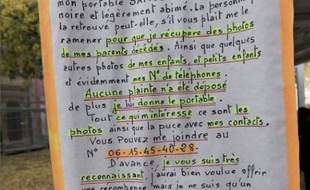 mon portable SA
noire et légèrement abimé. La personne
la retrouvé peut-elle, s'il vous plait me le
ramener pour que je récupère des photos
de mes parents décédés. Ainsi que quelques
autres photos de mes enfants, et petits enfants
et évidemment mes N° de téléphones.
Aucune plainte n'a été déposé
de plus je lui donne le portable.
Tout ce qui m'intéresse ce sont les
photos ainsi que la puce avec mes contacts.
Vous Pouvez me joindre au
N° 06-15-45-40-28.
D'avance, je vous suis très
reconnaissant j'aurai bien voulue offrir
une récompense mais je ne suis qu'un